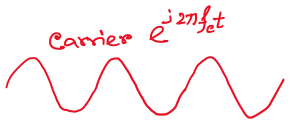 Carrier e^{j2πf_ct}